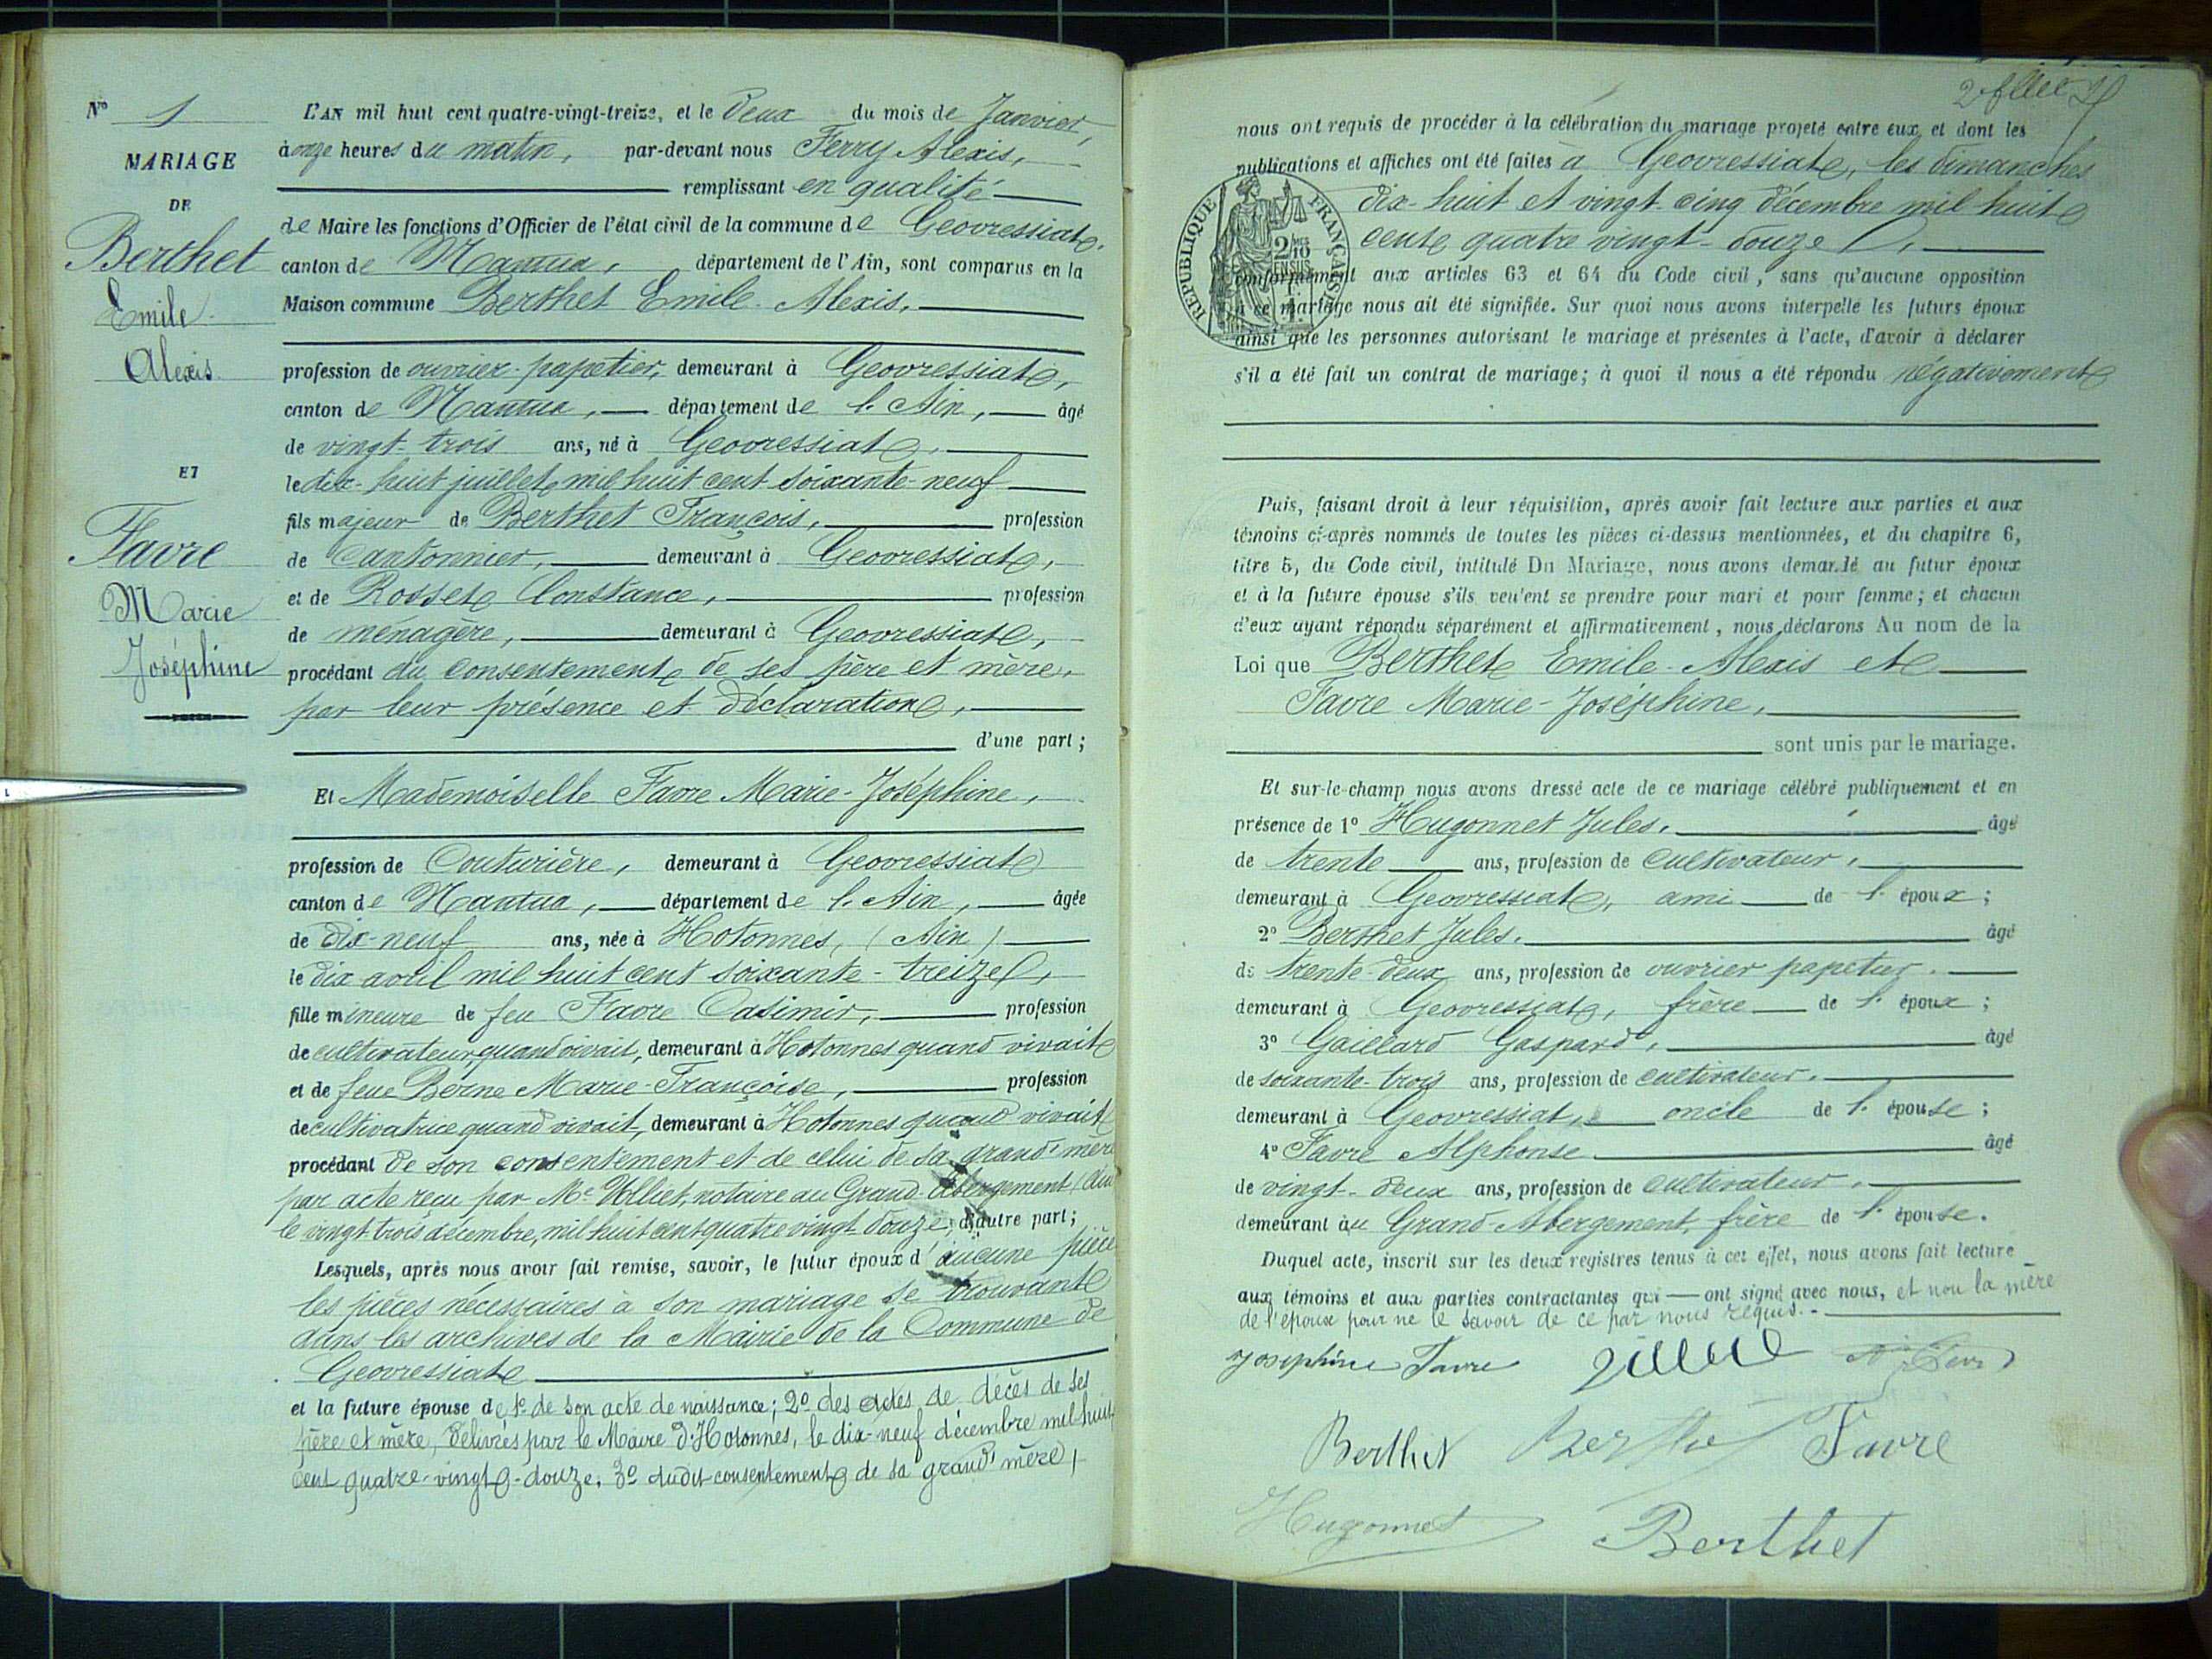 N° 1
MARIAGE
DE
Berthet
Emile
Alexis
ET
Favre
Marie
Joséphine
L'AN mil huit cent quatre-vingt-treize, et le Deux du mois de Janvier,
à onze heures du matin, par-devant nous Ferry Alexis,
remplissant en qualité
de Maire les fonctions d'Officier de l'état civil de la commune de Geovressiat,
canton de Nantua, département de l'Ain, sont comparus en la
Maison commune Berthet Emile-Alexis,
profession de ouvrier-papetier, demeurant à Geovressiat,
canton de Nantua, département de l'Ain, âgé
de vingt-trois ans, né à Geovressiat,
le dix-huit juillet mil huit cent soixante-neuf
fils majeur de Berthet François, profession
de Cantonnier, demeurant à Geovressiat,
et de Rosset Constance, profession
de ménagère, demeurant à Geovressiat,
procédant du consentement de ses père et mère,
par leur présence et déclaration,
d'une part;
Et Mademoiselle Favre Marie-Joséphine,
profession de Couturière, demeurant à Geovressiat
canton de Nantua, département de l'Ain, âgée
de dix-neuf ans, née à Hotonnes, (Ain)
le dix avril mil huit cent soixante-treize,
fille mineure de feu Favre Casimir, profession
de cultivateur, quand vivait, demeurant à Hotonnes quand vivait
et de feue Berne Marie-Françoise, profession
de cultivatrice quand vivait, demeurant à Hotonnes quand vivait
procédant de son consentement et de celui de sa grand'mère
par acte reçu par Me Volliet, notaire au Grand-Abergement (Ain
le vingt-trois décembre, mil huit cent quatre vingt douze, d'autre part;
Lesquels, après nous avoir fait remise, savoir, le futur époux d'aucune pièce
les pièces nécessaires à son mariage se trouvant
dans les archives de la Mairie de la Commune de
Geovressiat
et la future épouse de 1° de son acte de naissance; 2° des actes de décès de ses
père et mère, délivrés par le Maire d'Hotonnes, le dix-neuf décembre mil huit
cent quatre-vingt-douze. 3° dudit consentement de sa grand'mère,
nous ont requis de procéder à la célébration du mariage projeté entre eux, et dont les
publications et affiches ont été faites à Geovressiat, les dimanches
dix-huit et vingt-cinq décembre mil huit
cent quatre vingt-douze,
REPUBLIQUE FRANÇAISE
conformément aux articles 63 et 64 du Code civil, sans qu'aucune opposition
à ce mariage nous ait été signifiée. Sur quoi nous avons interpellé les futurs époux
ainsi que les personnes autorisant le mariage et présentes à l'acte, d'avoir à déclarer
s'il a été fait un contrat de mariage; à quoi il nous a été répondu négativement
Puis, faisant droit à leur réquisition, après avoir fait lecture aux parties et aux
témoins ci-après nommés de toutes les pièces ci-dessus mentionnées, et du chapitre 6,
titre 5, du Code civil, intitulé Du Mariage, nous avons demandé au futur époux
et à la future épouse s'ils veulent se prendre pour mari et pour femme; et chacun
d'eux ayant répondu séparément et affirmativement, nous déclarons Au nom de la
Loi que Berthet Emile-Alexis et
Favre Marie-Joséphine,
sont unis par le mariage.
Et sur-le-champ nous avons dressé acte de ce mariage célébré publiquement et en
présence de 1° Hugonnet Jules, âgé
de trente ans, profession de cultivateur,
demeurant à Geovressiat, ami de l'époux;
2° Berthet Jules, âgé
de trente-deux ans, profession de ouvrier papetier.
demeurant à Geovressiat, frère de l'époux;
3° Gaillard Gaspard, âgé
de soixante-trois ans, profession de cultivateur.
demeurant à Geovressiat, oncle de l'épouse;
4° Favre Alphonse âgé
de vingt-deux ans, profession de cultivateur.
demeurant au Grand-Abergement, frère de l'épouse.
Duquel acte, inscrit sur les deux registres tenus à cet effet, nous avons fait lecture
aux témoins et aux parties contractantes qui ont signé avec nous, et non la mère
de l'époux pour ne le savoir de ce par nous requis.
Joséphine Favre
Berthet Berthet Favre
Hugonnet Berthet